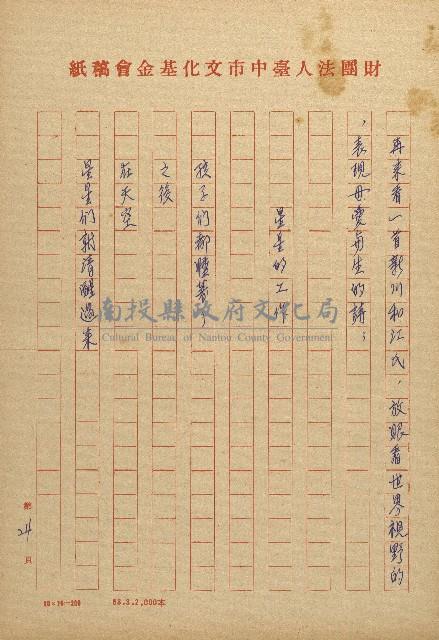 財團法人臺中市文化基金會稿紙
再來看一首新川和江氏,放眼看世界視野的
,表現母愛與生的詩:
星星的工作
孩子們都睡著了
之後
在天空
星星們就清醒過來
第24頁
南投縣政府文化局
Cultural Bureau of Nantou County Government
88.3.2,000本